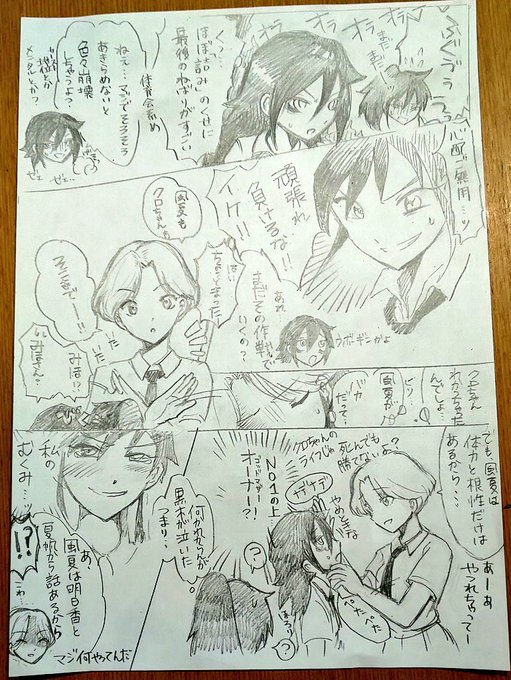 ぶくぅぅぅぅ
オラ
オラ
オラ
オラ
まだまだ
くっ…
「ほぼ詰み」のくせに
最後のねばりがすごい
体育会系め
ねぇ…マジでそろそろ
あきらめないと
色々崩壊
しちゃうよ?
メンタルとか?
ぜぇ
ぜぇ…
心配ご無用…ッ
頑張れ
負けるな!!
イケ!!
あれ
まだその作戦で
いくの?
ウボォギンかよ
風夏も
クロちゃんも
はい
ちょっと まった
そこまでー!!!
いた
いた
みほ!?
みほさん?
クロちゃん
わかってた
んでしょ。
風夏が
バカ
だって…
でも、風夏は
体力と根性だけは
あるから…
クロちゃんの
ライフじゃ
死んでも
勝てないよ?
あーあ
やつれちゃって〜
ナデナデ
やめ
ぺたぺた
ほろり
?
?
NO1の上
オーナー!?
何かしらんが
黒木が泣いた
つまり…
私の
むくみ…ッ
あ、
風夏は明日香と
夏帆から話あるから
!?
こわ…
マジ何やってんだ